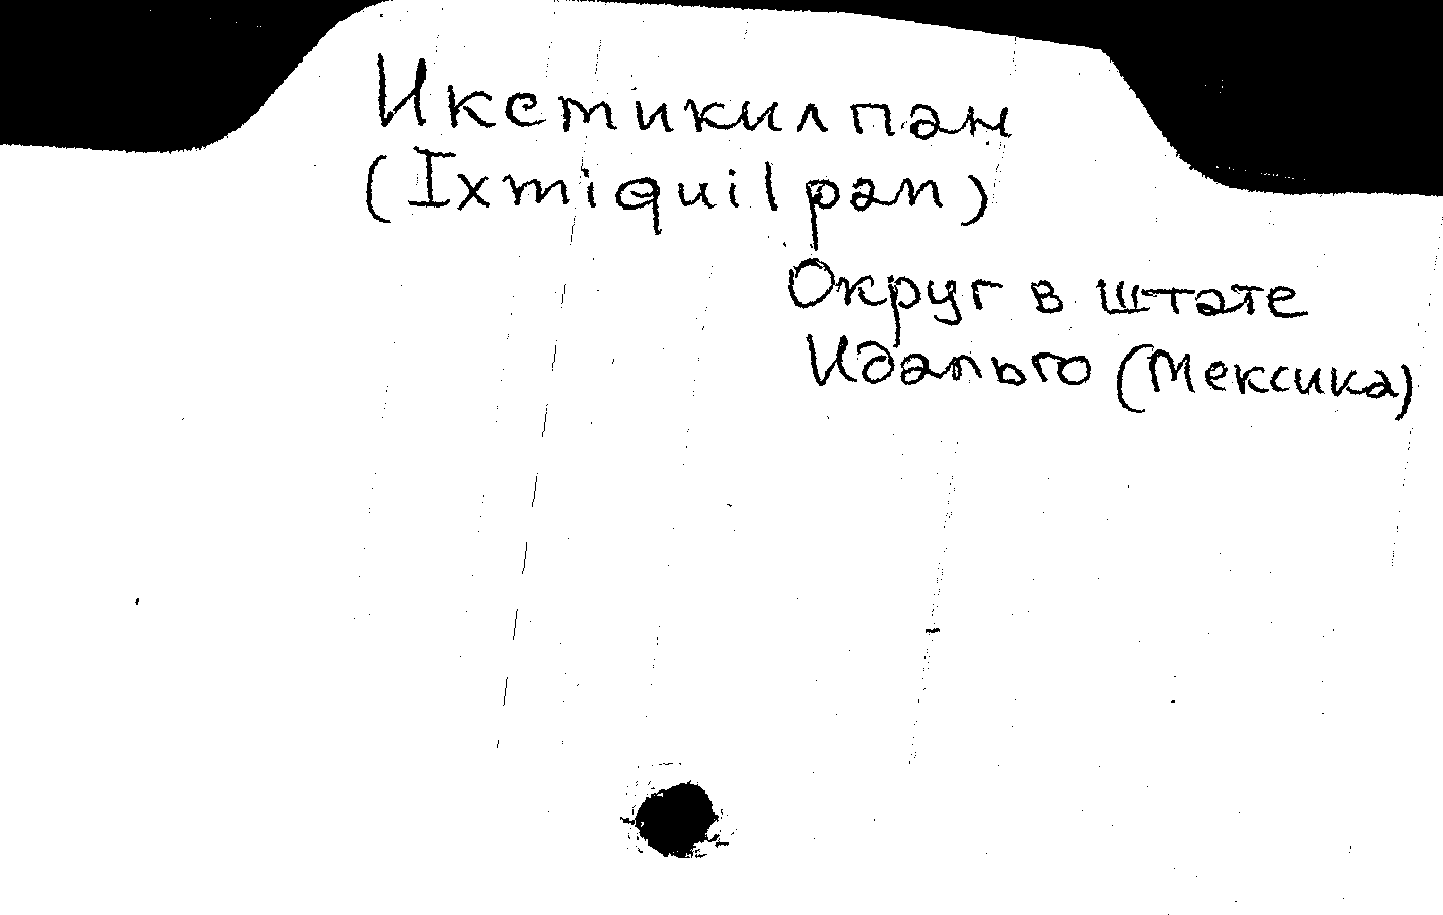 Иксмикилпан
(Ixmiquilpan)
Округ в штате
Идальго (Мексика)